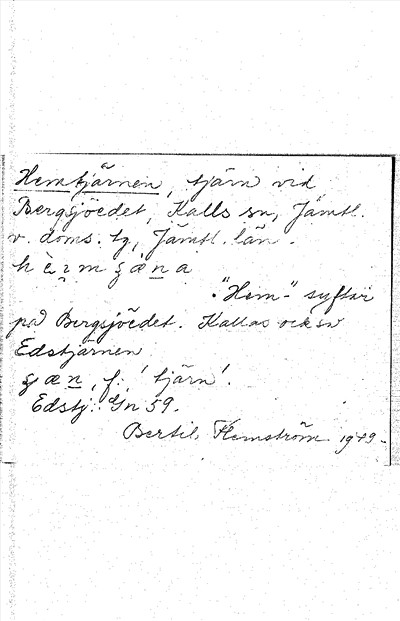 Hemtjärnen, tjärn vid
Bergsjöedet, Kalls sn, Jämtl.
v. doms. tg, Jämtl. län.
."Hem-" syftar
på Bergsjöedet. Kallas också
Edstjärnen
f. 'tjärn'.
Edstj. Gn 59.
Bertil Flemström 1949.